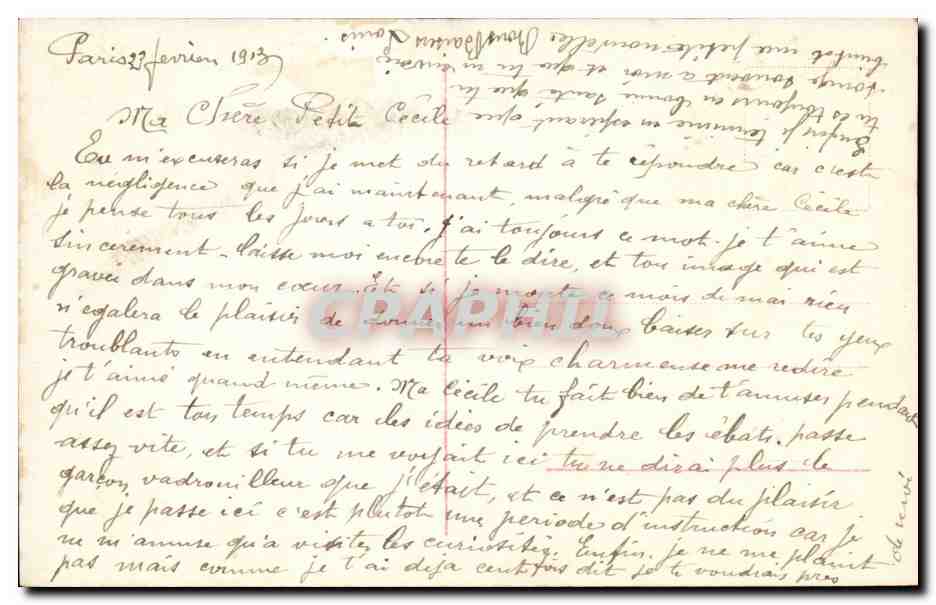 Paris 23 fevrier 1913
Ma Chère Petit Cécile
Tu m'excuseras si je met du retard à te répondre car c'est
la négligence que j'ai maintenant, malgré que ma chère Cécile
je pense tous les jours a toi. j'ai toujours ce mot. je t'aime
sincerement. laisse moi encore te le dire, et ton image qui est
gravée dans mon coeur. Et si je monte ce mois de mai rien
n'egalera le plaisir de donner un bien doux baiser sur tes yeux
troublants en entendant ta voix charmeuse me redire
je t'aime quand même. Ma Cécile tu fait bien de t'amuser pendant
qu'il est ton temps car les idées de prendre les ébats. passe
assez vite, et si tu me voyait ici tu ne dirai plus le
garçon vadrouilleur que j'était, et ce n'est pas du plaisir
que je passe ici c'est plutôt une periode d'instruction car je
ne m'amuse qu'a visiter les curiosités. Enfin. je ne me plaint
pas mais comme je t'ai deja cent fois dit je te voudrais pres
de moi
Enfin je termine en espérant que
tu es toujours en bonne santé que tu
songe souvent a moi et que tu m'enverra
bientot une petite nouvelle Bons Baisers Louis.
CPAPHIL